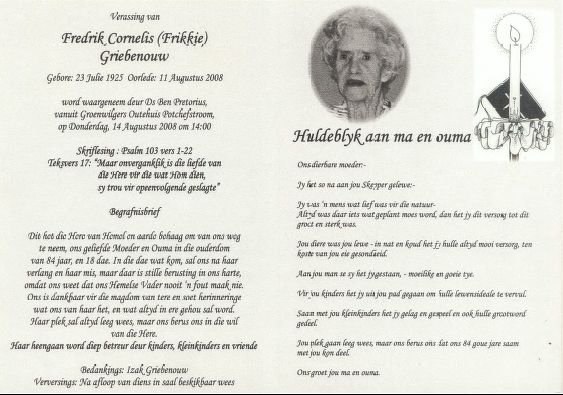 Verassing van
Fredrik Cornelis (Frikkie)
Griebenouw
Gebore: 23 Julie 1925 Oorlede: 11 Augustus 2008
word waargeneem deur Ds Ben Pretorius,
vanuit Groenwilgers Outehuis Potchefstroom,
op Donderdag, 14 Augustus 2008 om 14:00
Skriflesing : Psalm 103 vers 1-22
Teksvers 17: "Maar onverganklik is die liefde van
die Here vir die wat Hom dien,
sy trou vir opeenvolgende geslagte"
Begrafnisbrief
Dit hot die Here van Hemel en aarde behaag om van ons weg
te neem, ons geliefde Moeder en Ouma in die ouderdom
van 84 jaar, en 18 dae. In die dae wat kom, sal ons na haar
verlang en haar mis, maar daar is stille berusting in ons harte,
omdat ons weet dat ons Hemelse Vader nooit 'n fout maak nie.
Ons is dankbaar vir die magdom van tere en soet herinneringe
wat ons van haar het, en wat altyd in ere gehou sal word.
Haar plek sal altyd leeg wees, maar ons berus ons in die wil
van die Here.
Haar heengaan word diep betreur deur kinders, kleinkinders en vriende
Bedankings: Izak Griebenouw
Verversings: Na afloop van diens in saal beskikbaar wees
Huldeblyk aan ma en ouma
Ons dierbare moeder:-
Jy het so na aan jou Skepper gelewe:-
Jy was 'n mens wat lief was vir die natuur-
Altyd was daar iets wat geplant moes word, dan het jy dit versorg tot dit
groot en sterk was.
Jou diere was jou lewe - in nat en koud het jy hulle altyd mooi versorg, ten
koste van jou eie gesondheid.
Aan jou man se sy het jy gestaan, - moeilike en goeie tye.
Vir jou kinders het jy uit jou pad gegaan om hulle lewensideale te vervul.
Saam met jou kleinkinders het jy gelag en gespeel en ook hulle grootword
gedeel.
Jou plek gaan leeg wees, maar ons berus ons dat ons 84 goue jare saam
met jou kon deel.
Ons groet jou ma en ouma.